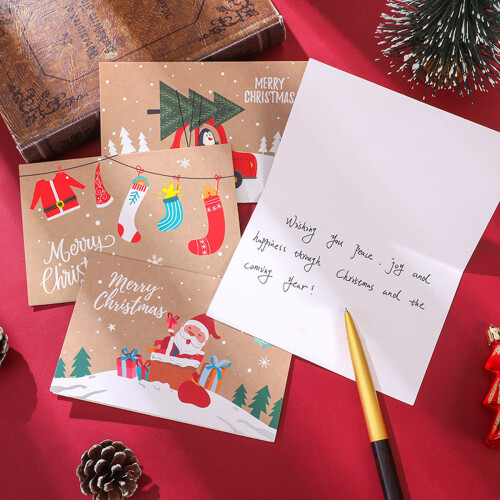 MERRY
CHRISTMAS
Merry
Christ
Merry
Christmas
Wishing you peace, joy and
happiness through Christmas and the
coming Year!